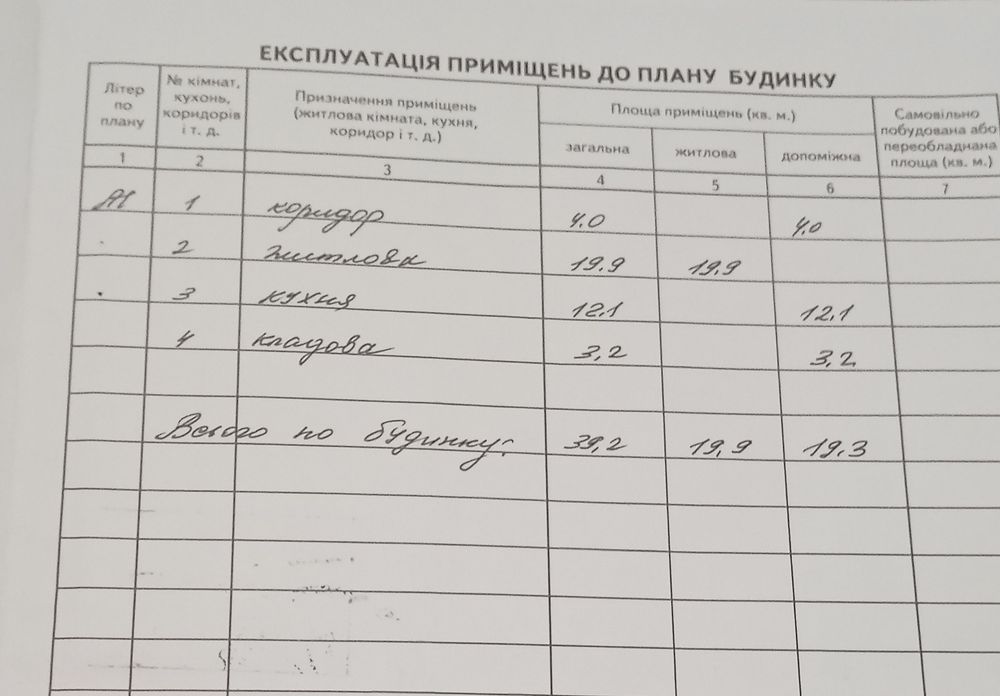 ЕКСПЛУАТАЦІЯ ПРИМІЩЕНЬ ДО ПЛАНУ БУДИНКУ
Літер по плану
№ кімнат, кухонь, коридорів і т. д.
Призначення приміщень (житлова кімната, кухня, коридор і т. д.)
Площа приміщень (кв. м.)
Самовільно побудована або переобладнана площа (кв. м.)
загальна житлова допоміжна
1 2 3 4 5 6 7
1 коридор 4.0 4.0
2 житлова 19.9 19,9
3 кухня 12.1 12.1
4 кладова 3,2 3,2
Всього по будинку: 39,2 19,9 19.3